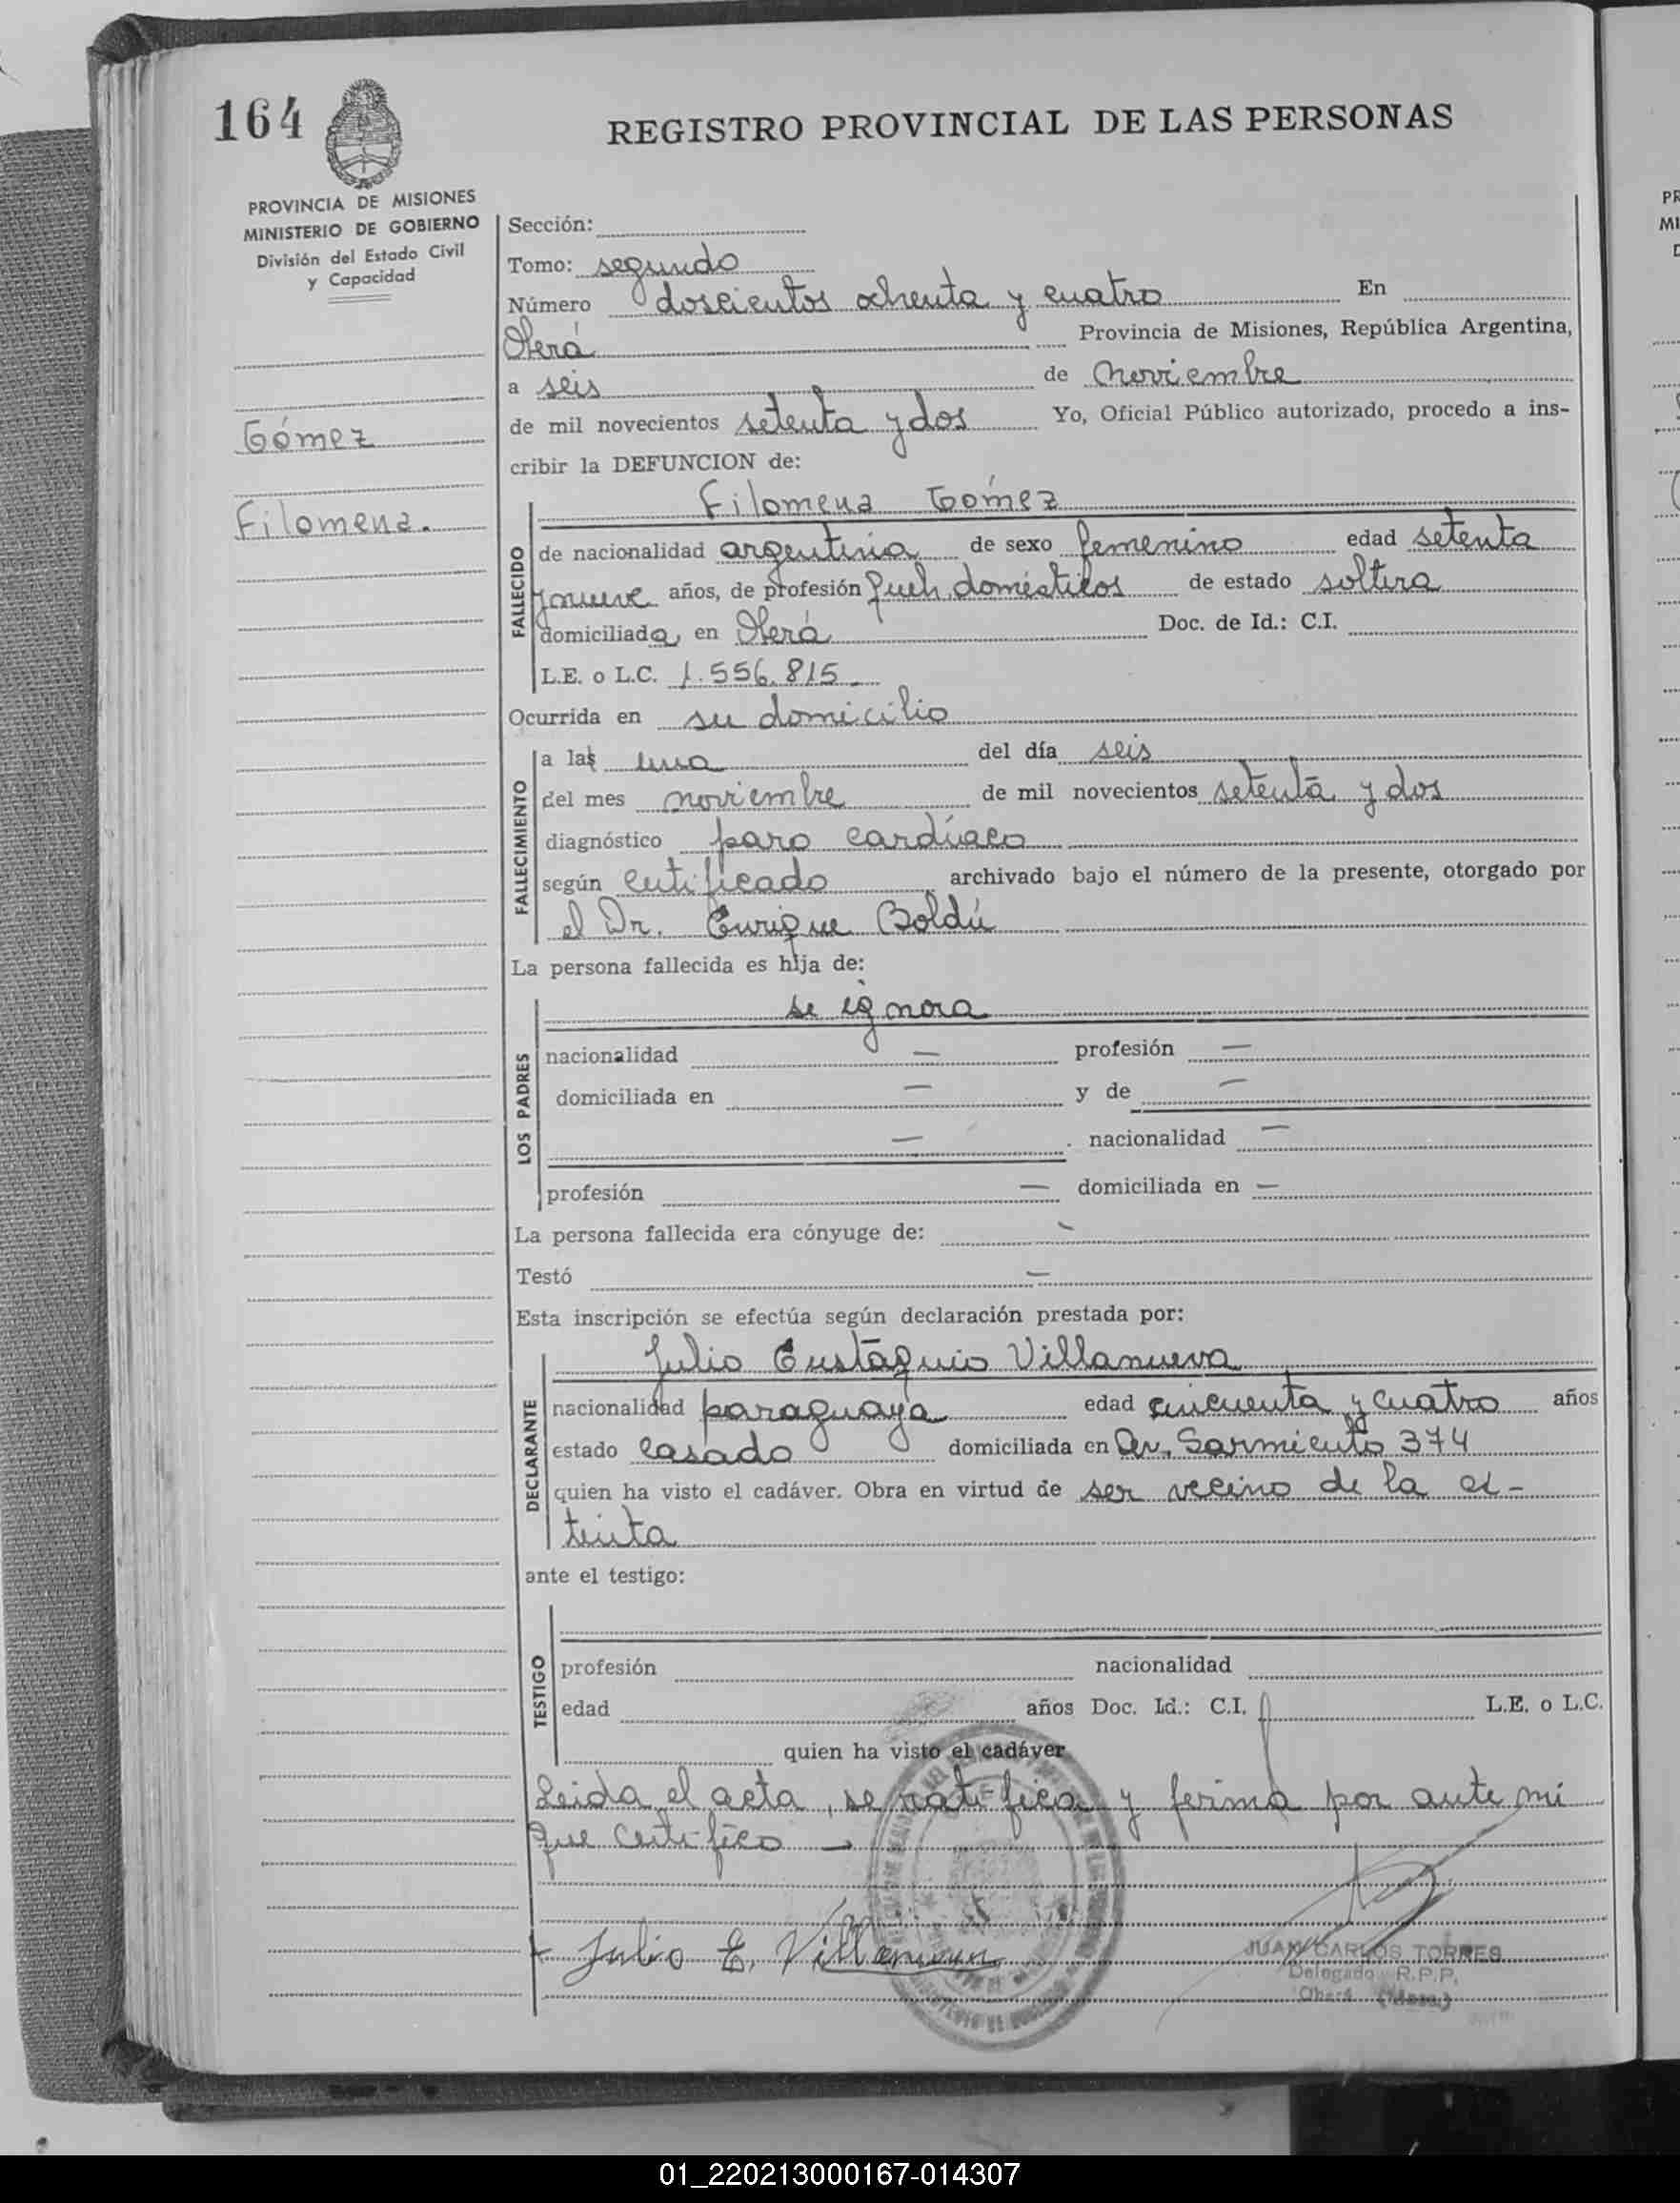 164
REGISTRO PROVINCIAL DE LAS PERSONAS
PROVINCIA DE MISIONES
MINISTERIO DE GOBIERNO
División del Estado Civil
y Capacidad
Gómez
Filomena.
Sección:
Tomo: segundo
Número doscientos ochenta y cuatro En
Oberá Provincia de Misiones, República Argentina,
a seis de noviembre
de mil novecientos setenta y dos Yo, Oficial Público autorizado, procedo a ins-
cribir la DEFUNCION de:
Filomena Gómez
FALLECIDO
de nacionalidad argentina de sexo femenino edad setenta
y nueve años, de profesión queh. domésticos de estado soltera
domiciliada, en Oberá Doc. de Id.: C.I.
L.E. o L.C. 1.556.815
Ocurrida en su domicilio
FALLECIMIENTO
a las una del día seis
del mes noviembre de mil novecientos setenta y dos
diagnóstico paro cardíaco
según certificado archivado bajo el número de la presente, otorgado por
el Dr. Enrique Boldú
La persona fallecida es hija de:
se ignora
LOS PADRES
nacionalidad — profesión —
domiciliada en — y de —
— . nacionalidad —
profesión — domiciliada en —
La persona fallecida era cónyuge de: -
Testó —
Esta inscripción se efectúa según declaración prestada por:
Julio Eustaquio Villanueva
DECLARANTE
nacionalidad paraguaya edad cincuenta y cuatro años
estado casado domiciliada en Av. Sarmiento 374
quien ha visto el cadáver. Obra en virtud de ser vecino de la ex-
tinta
ante el testigo:
TESTIGO
profesión nacionalidad
edad años Doc. Id.: C.I. L.E. o L.C.
quien ha visto el cadáver
Leida el acta, se ratifica y firma por ante mi
que certifico —
Julio E. Villanueva
JUAN CARLOS TORRES
Delegado R.P.P.
Oberá (Mnes.)
01_220213000167-014307